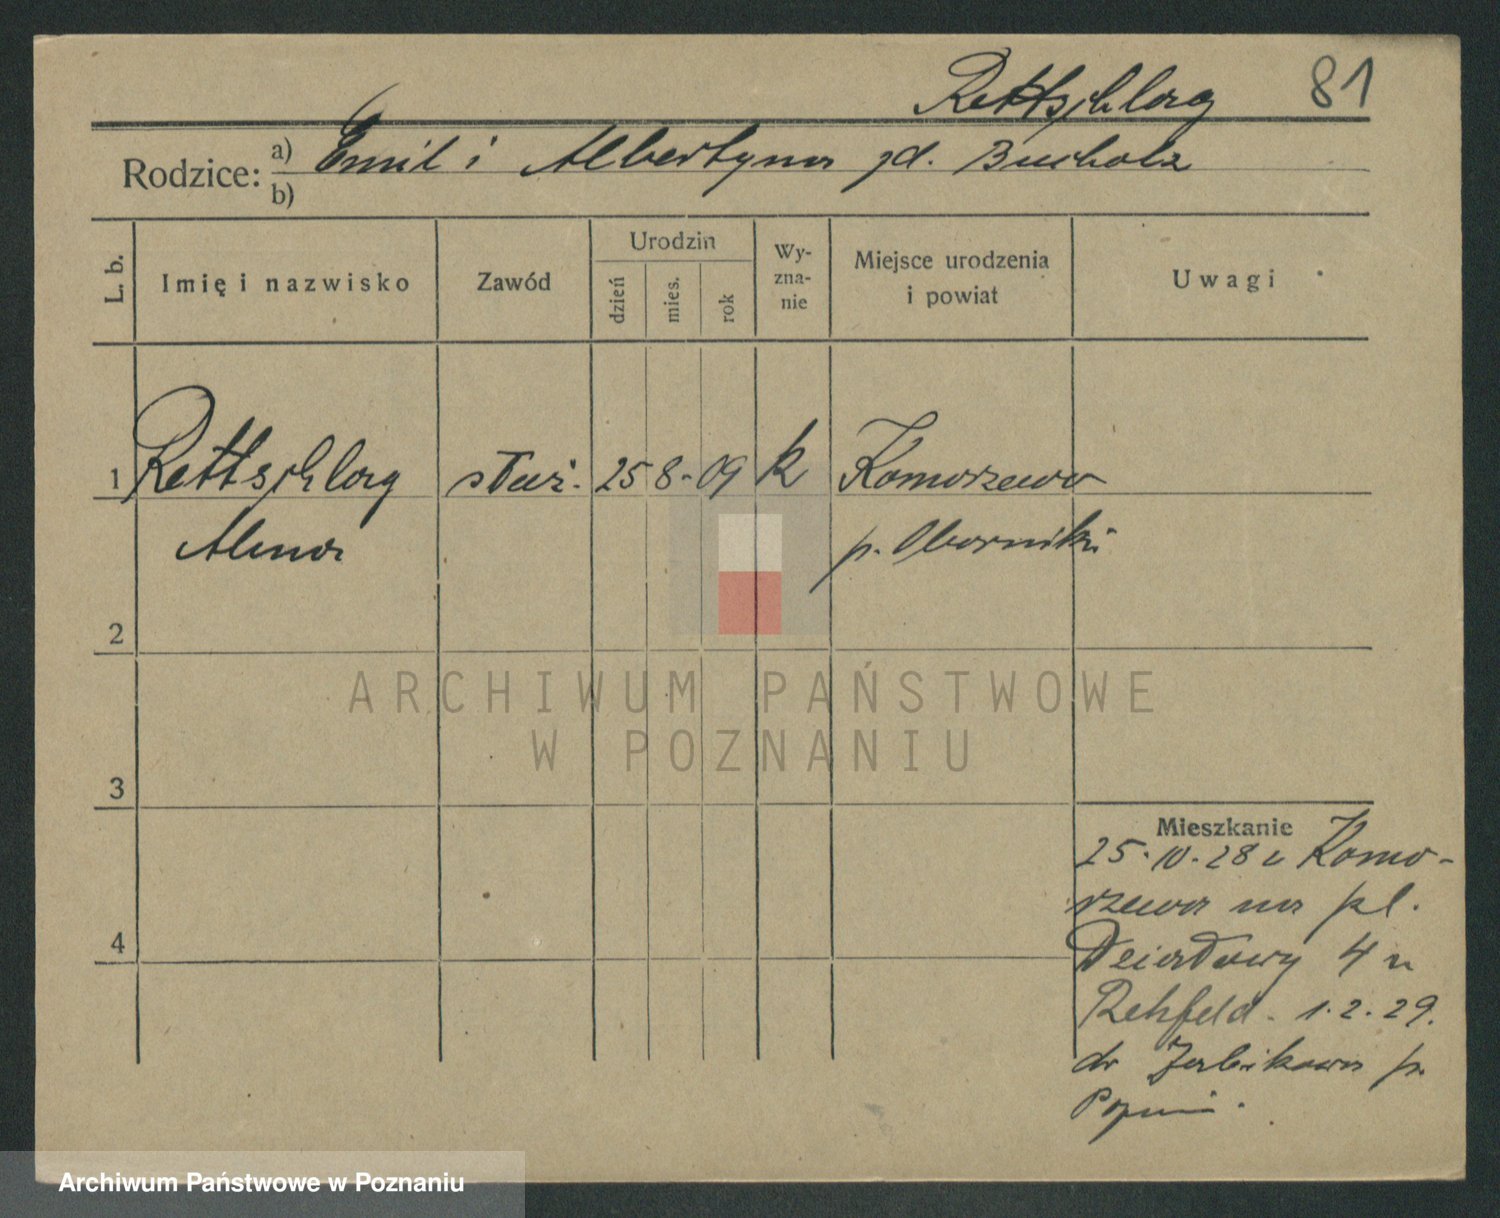 Rettschlag 81
Rodzice: a) Emil i Albertyna zd. Bucholz
b)
L. b. Imię i nazwisko Zawód Urodzin dzień mies. rok Wyznanie Miejsce urodzenia i powiat Uwagi
1 Rettschlag służ. 25 8 - 09 k Komorzewo
Alma p. Oborniki
2
ARCHIWUM PAŃSTWOWE
W POZNANIU
3
Mieszkanie
25.10.28 z Komo-
rzewa na pl.
Działowy 4 u
Rehfeld. 1.2.29.
do Żabikowa p.
4
Archiwum Państwowe w Poznaniu